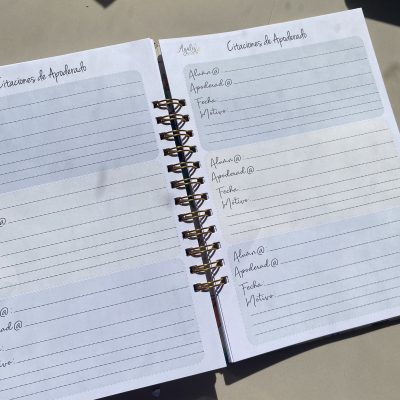 Citaciones de Apoderado
@
@
ad@
Citaciones de Apoderado
Alumn@
Apoderad@
Fecha
Motivo
Alumn@
Apoderad@
Fecha
Motivo
Alumn@
Apoderad@
Fecha
Motivo